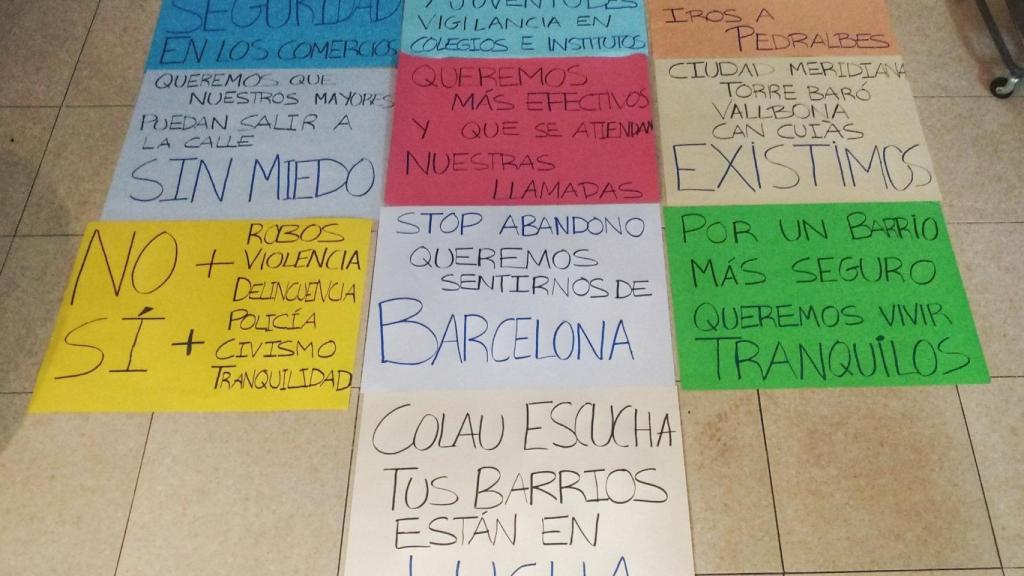 SEGURIDAD
EN LOS COMERCIOS
Y JUVENTUDES
VIGILANCIA EN
COLEGIOS E INSTITUTOS
IROS A
PEDRALBES
QUEREMOS QUE
NUESTROS MAYORES
PUEDAN SALIR A
LA CALLE
SIN MIEDO
QUEREMOS
MÁS EFECTIVOS
Y QUE SE ATIENDAN
NUESTRAS
LLAMADAS
CIUDAD MERIDIANA
TORRE BARÓ
VALLBONA
CAN CUIÁS
EXISTIMOS
NO + ROBOS
VIOLENCIA
DELINCUENCIA
SÍ + POLICÍA
CIVISMO
TRANQUILIDAD
STOP ABANDONO
QUEREMOS
SENTIRNOS DE
BARCELONA
POR UN BARRIO
MÁS SEGURO
QUEREMOS VIVIR
TRANQUILOS
COLAU ESCUCHA
TUS BARRIOS
ESTÁN EN
LUCHA